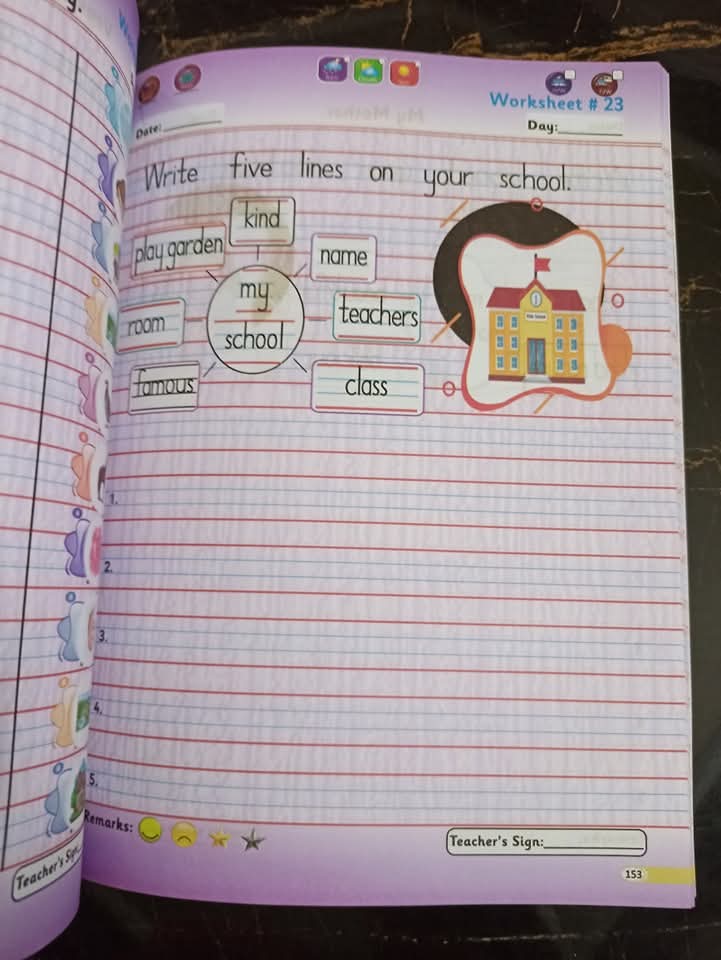 Worksheet # 23
Date:
Day:
Write five lines on your school.
kind
play garden
name
my
school
room
teachers
famous
class
1.
2.
3.
4.
5.
Remarks:
Teacher's Sign:
153
Teacher's Sign: